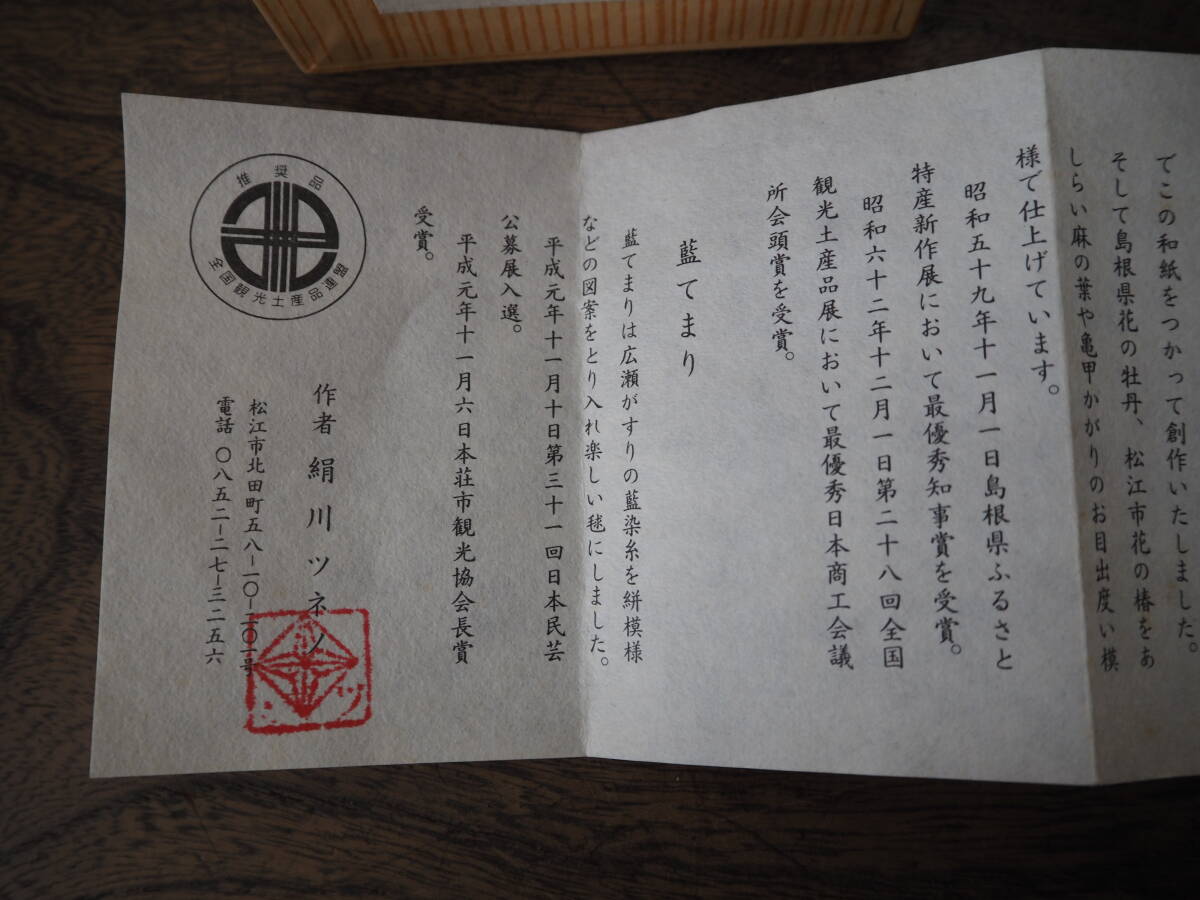 てこの和紙をつかって創作いたしました。
そして島根県花の牡丹、松江市花の椿をあ
しらい麻の葉や亀甲かがりのお目出度い模
様で仕上げています。
昭和五十九年十一月一日島根県ふるさと
特産新作展において最優秀知事賞を受賞。
昭和六十二年十二月一日第二十八回全国
観光土産品展において最優秀日本商工会議
所会頭賞を受賞。
藍てまり
藍てまりは広瀬がすりの藍染糸を絣模様
などの図案をとり入れ楽しい毬にしました。
平成元年十一月十日第三十一回日本民芸
公募展入選。
平成元年十一月六日本荘市観光協会長賞
受賞。
推奨品
全国観光土産品連盟
作者 絹川ツネノ
松江市北田町五八ー一〇ー二〇一号
電話 〇八五二ー二七ー三二五六
ツ